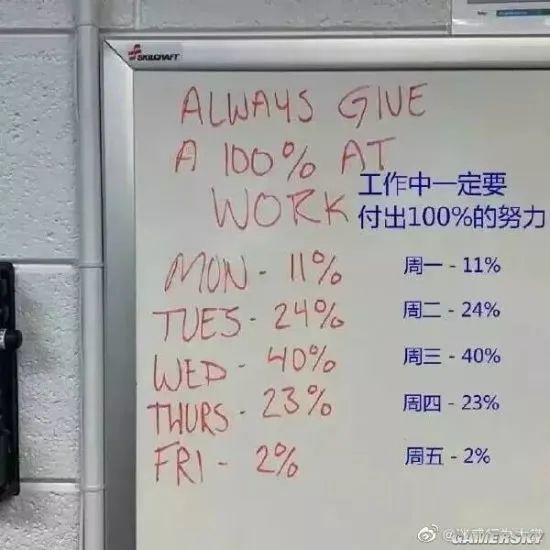 SKILCRAFT
ALWAYS GIVE
A 100% AT
WORK
工作中一定要
付出100%的努力
MON - 11%
周一 - 11%
TUES - 24%
周二 - 24%
WED - 40%
周三 - 40%
THURS - 23%
周四 - 23%
FRI - 2%
周五 - 2%
GAMERSKY